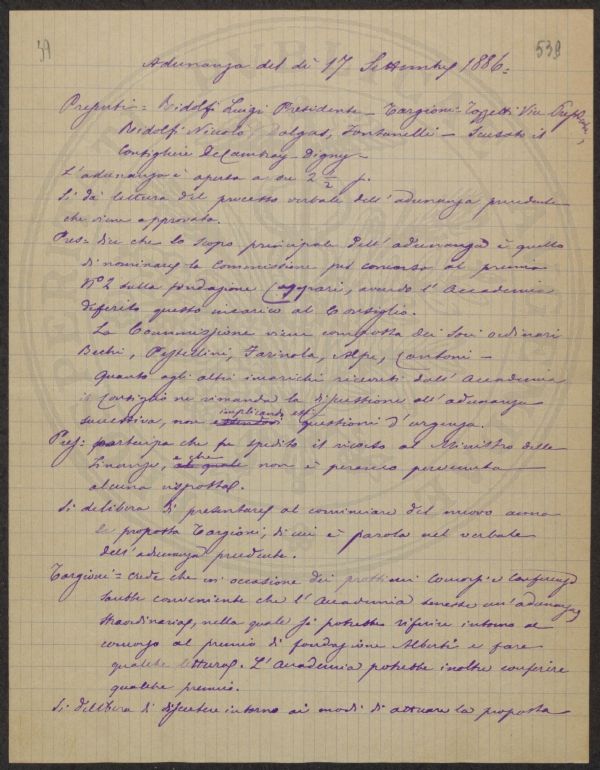 39 539
Adunanza del dì 17 Settembre 1886 =
Presenti = Ridolfi Luigi Presidente - Targioni-Tozzetti Vice Presidente,
Ridolfi Niccolò, Dalgas, Fontanelli - Scusato il
Consigliere De Cambray-Digny -
L'adunanza è aperta a ore 2 1/2 p.
Si dà lettura del processo verbale dell'adunanza precedente
che viene approvato.
Pres = dice che lo scopo principale dell'adunanza è quello
di nominare la Commissione pel concorso al premio
N° 2 sulla fondazione avendo l'Accademia
deferito questo incarico al Consiglio.
La Commissione viene composta dei Soci ordinari
Bechi, Pestellini, Farinola, Alpe, Cantoni -
Quanto agli altri incarichi ricevuti dall'Accademia
il Consiglio ne rimanda la discussione all'adunanza
successiva, non implicando essi questioni d'urgenza.
Pres: partecipa che fu spedito il ricorso al Ministro delle
Finanze, e che non è peranco pervenuta
alcuna risposta.
Si delibera di presentare al cominciare del nuovo anno
la proposta Targioni, di cui è parola nel verbale
dell'adunanza precedente.
Targioni = crede che in occasione dei prossimi Concorsi e Conferenze
sarebbe conveniente che l'Accademia tenesse un'adunanza
straordinaria, nella quale si potrebbe riferire intorno al
concorso al premio di fondazione Alberti e fare
qualche lettura. L'Accademia potrebbe inoltre conferire
qualche premio.
Si delibera di discutere intorno ai modi di attuare la proposta